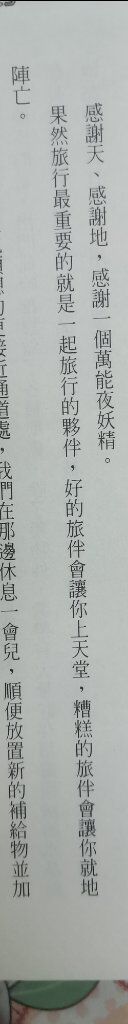 感謝天、感謝地，感謝一個萬能夜妖精。
果然旅行最重要的就是一起旅行的夥伴，好的旅伴會讓你上天堂，糟糕的旅伴會讓你就地
陣亡。
接近通道處，我們在那邊休息一會兒，順便放置新的補給物並加